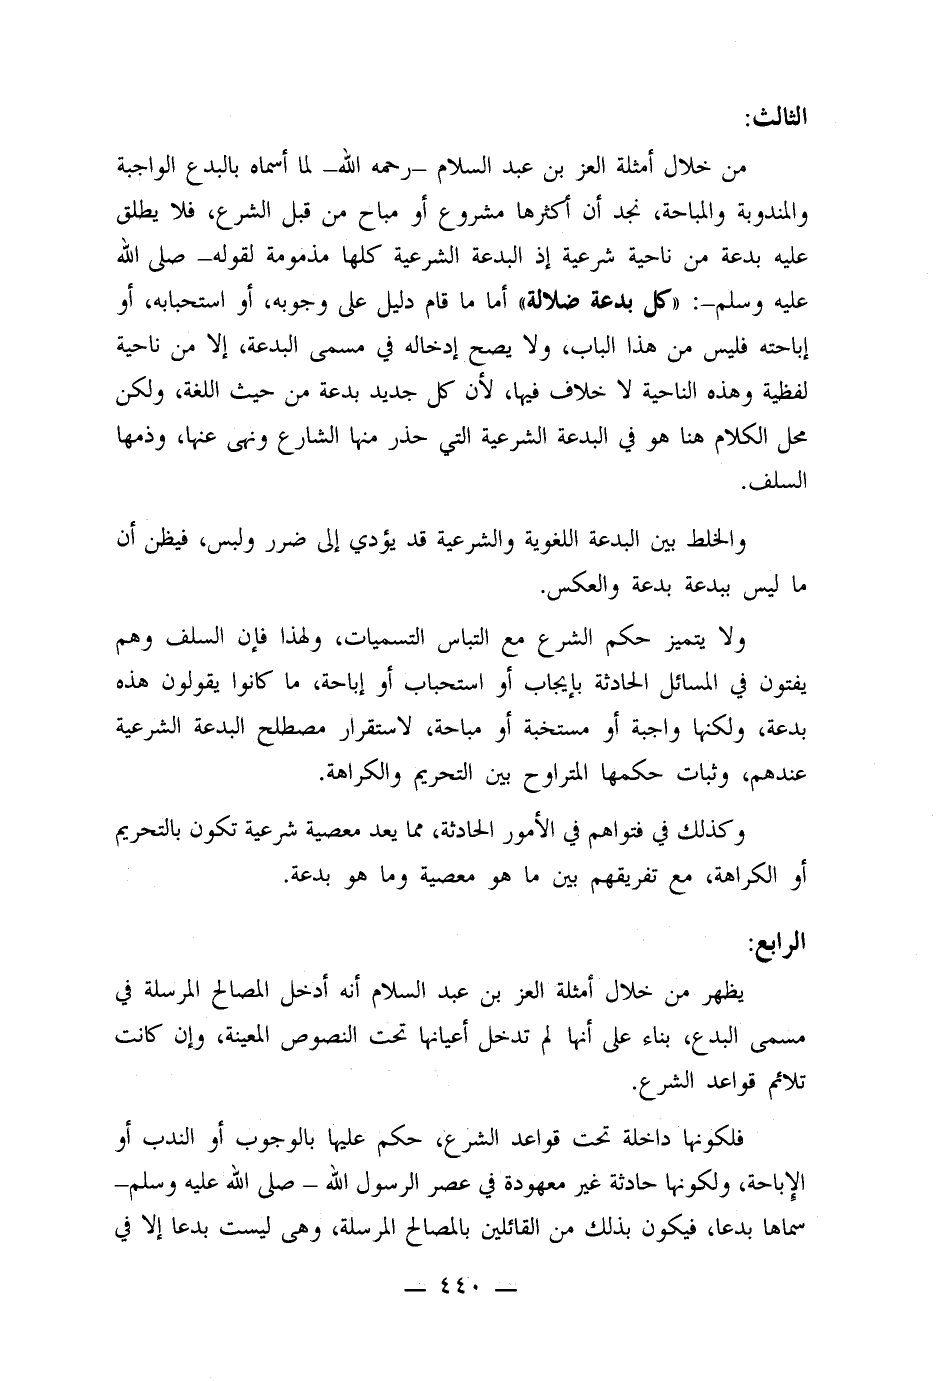 الثالث:
من خلال أمثلة العز بن عبد السلام –رحمه الله– لما أسماه بالبدع الواجبة
والمندوبة والمباحة، نجد أن أكثرها مشروع أو مباح من قبل الشرع، فلا يطلق
عليه بدعة من ناحية شرعية إذ البدعة الشرعية كلها مذمومة لقوله– صلى الله
عليه وسلم–: «كل بدعة ضلالة» أما ما قام دليل على وجوبه، أو استحبابه، أو
إباحته فليس من هذا الباب، ولا يصح إدخاله في مسمى البدعة، إلا من ناحية
لفظية وهذه الناحية لا خلاف فيها، لأن كل جديد بدعة من حيث اللغة، ولكن
محل الكلام هنا هو في البدعة الشرعية التي حذر منها الشارع ونهى عنها، وذمها
السلف.
والخلط بين البدعة اللغوية والشرعية قد يؤدي إلى ضرر ولبس، فيظن أن
ما ليس ببدعة بدعة والعكس.
ولا يتميز حكم الشرع مع التباس التسميات، ولهذا فإن السلف وهم
يفتون في المسائل الحادثة بإيجاب أو استحباب أو إباحة، ما كانوا يقولون هذه
بدعة، ولكنها واجبة أو مستخبة أو مباحة، لاستقرار مصطلح البدعة الشرعية
عندهم، وثبات حكمها المتراوح بين التحريم والكراهة.
وكذلك في فتواهم في الأمور الحادثة، مما يعد معصية شرعية تكون بالتحريم
أو الكراهة، مع تفريقهم بين ما هو معصية وما هو بدعة.
الرابع:
يظهر من خلال أمثلة العز بن عبد السلام أنه أدخل المصالح المرسلة في
مسمى البدع، بناء على أنها لم تدخل أعيانها تحت النصوص المعينة، وإن كانت
تلائم قواعد الشرع.
فلكونها داخلة تحت قواعد الشرع، حكم عليها بالوجوب أو الندب أو
الإباحة، ولكونها حادثة غير معهودة في عصر الرسول الله – صلى الله عليه وسلم–
سماها بدعا، فيكون بذلك من القائلين بالمصالح المرسلة، وهى ليست بدعا إلا في
— ٤٤٠ —